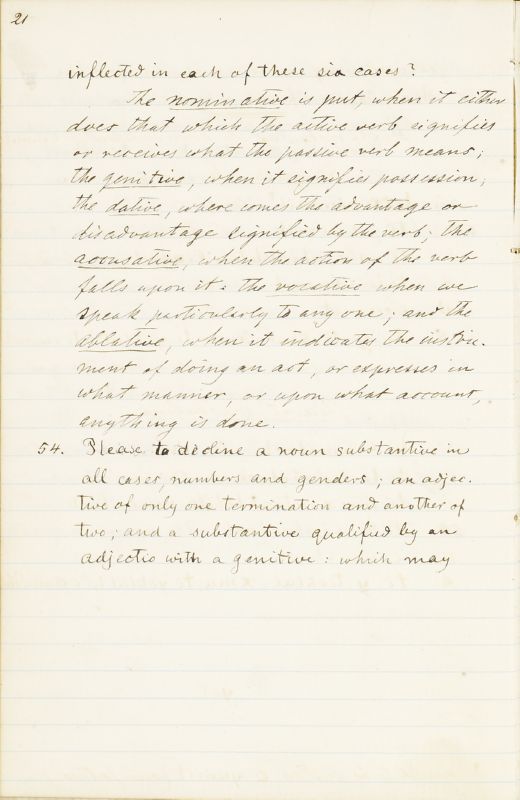 21
inflected in each of these six cases?
The nominative is put, when it either
does that which the active verb signifies
or receives what the passive verb means;
the genitive, when it signifies possession;
the dative, where comes the advantage or
disadvantage signified by the verb; the
accusative, when the action of the verb
falls upon it: the vocative when we
speak particularly to any one; and the
ablative, when it indicates the instru-
ment of doing an act, or expresses in
what manner, or upon what account,
anything is done.
54. Please to decline a noun substantive in
all cases, numbers and genders; an adjec-
tive of only one termination and another of
two; and a substantive qualified by an
adjectio with a genitive: which may